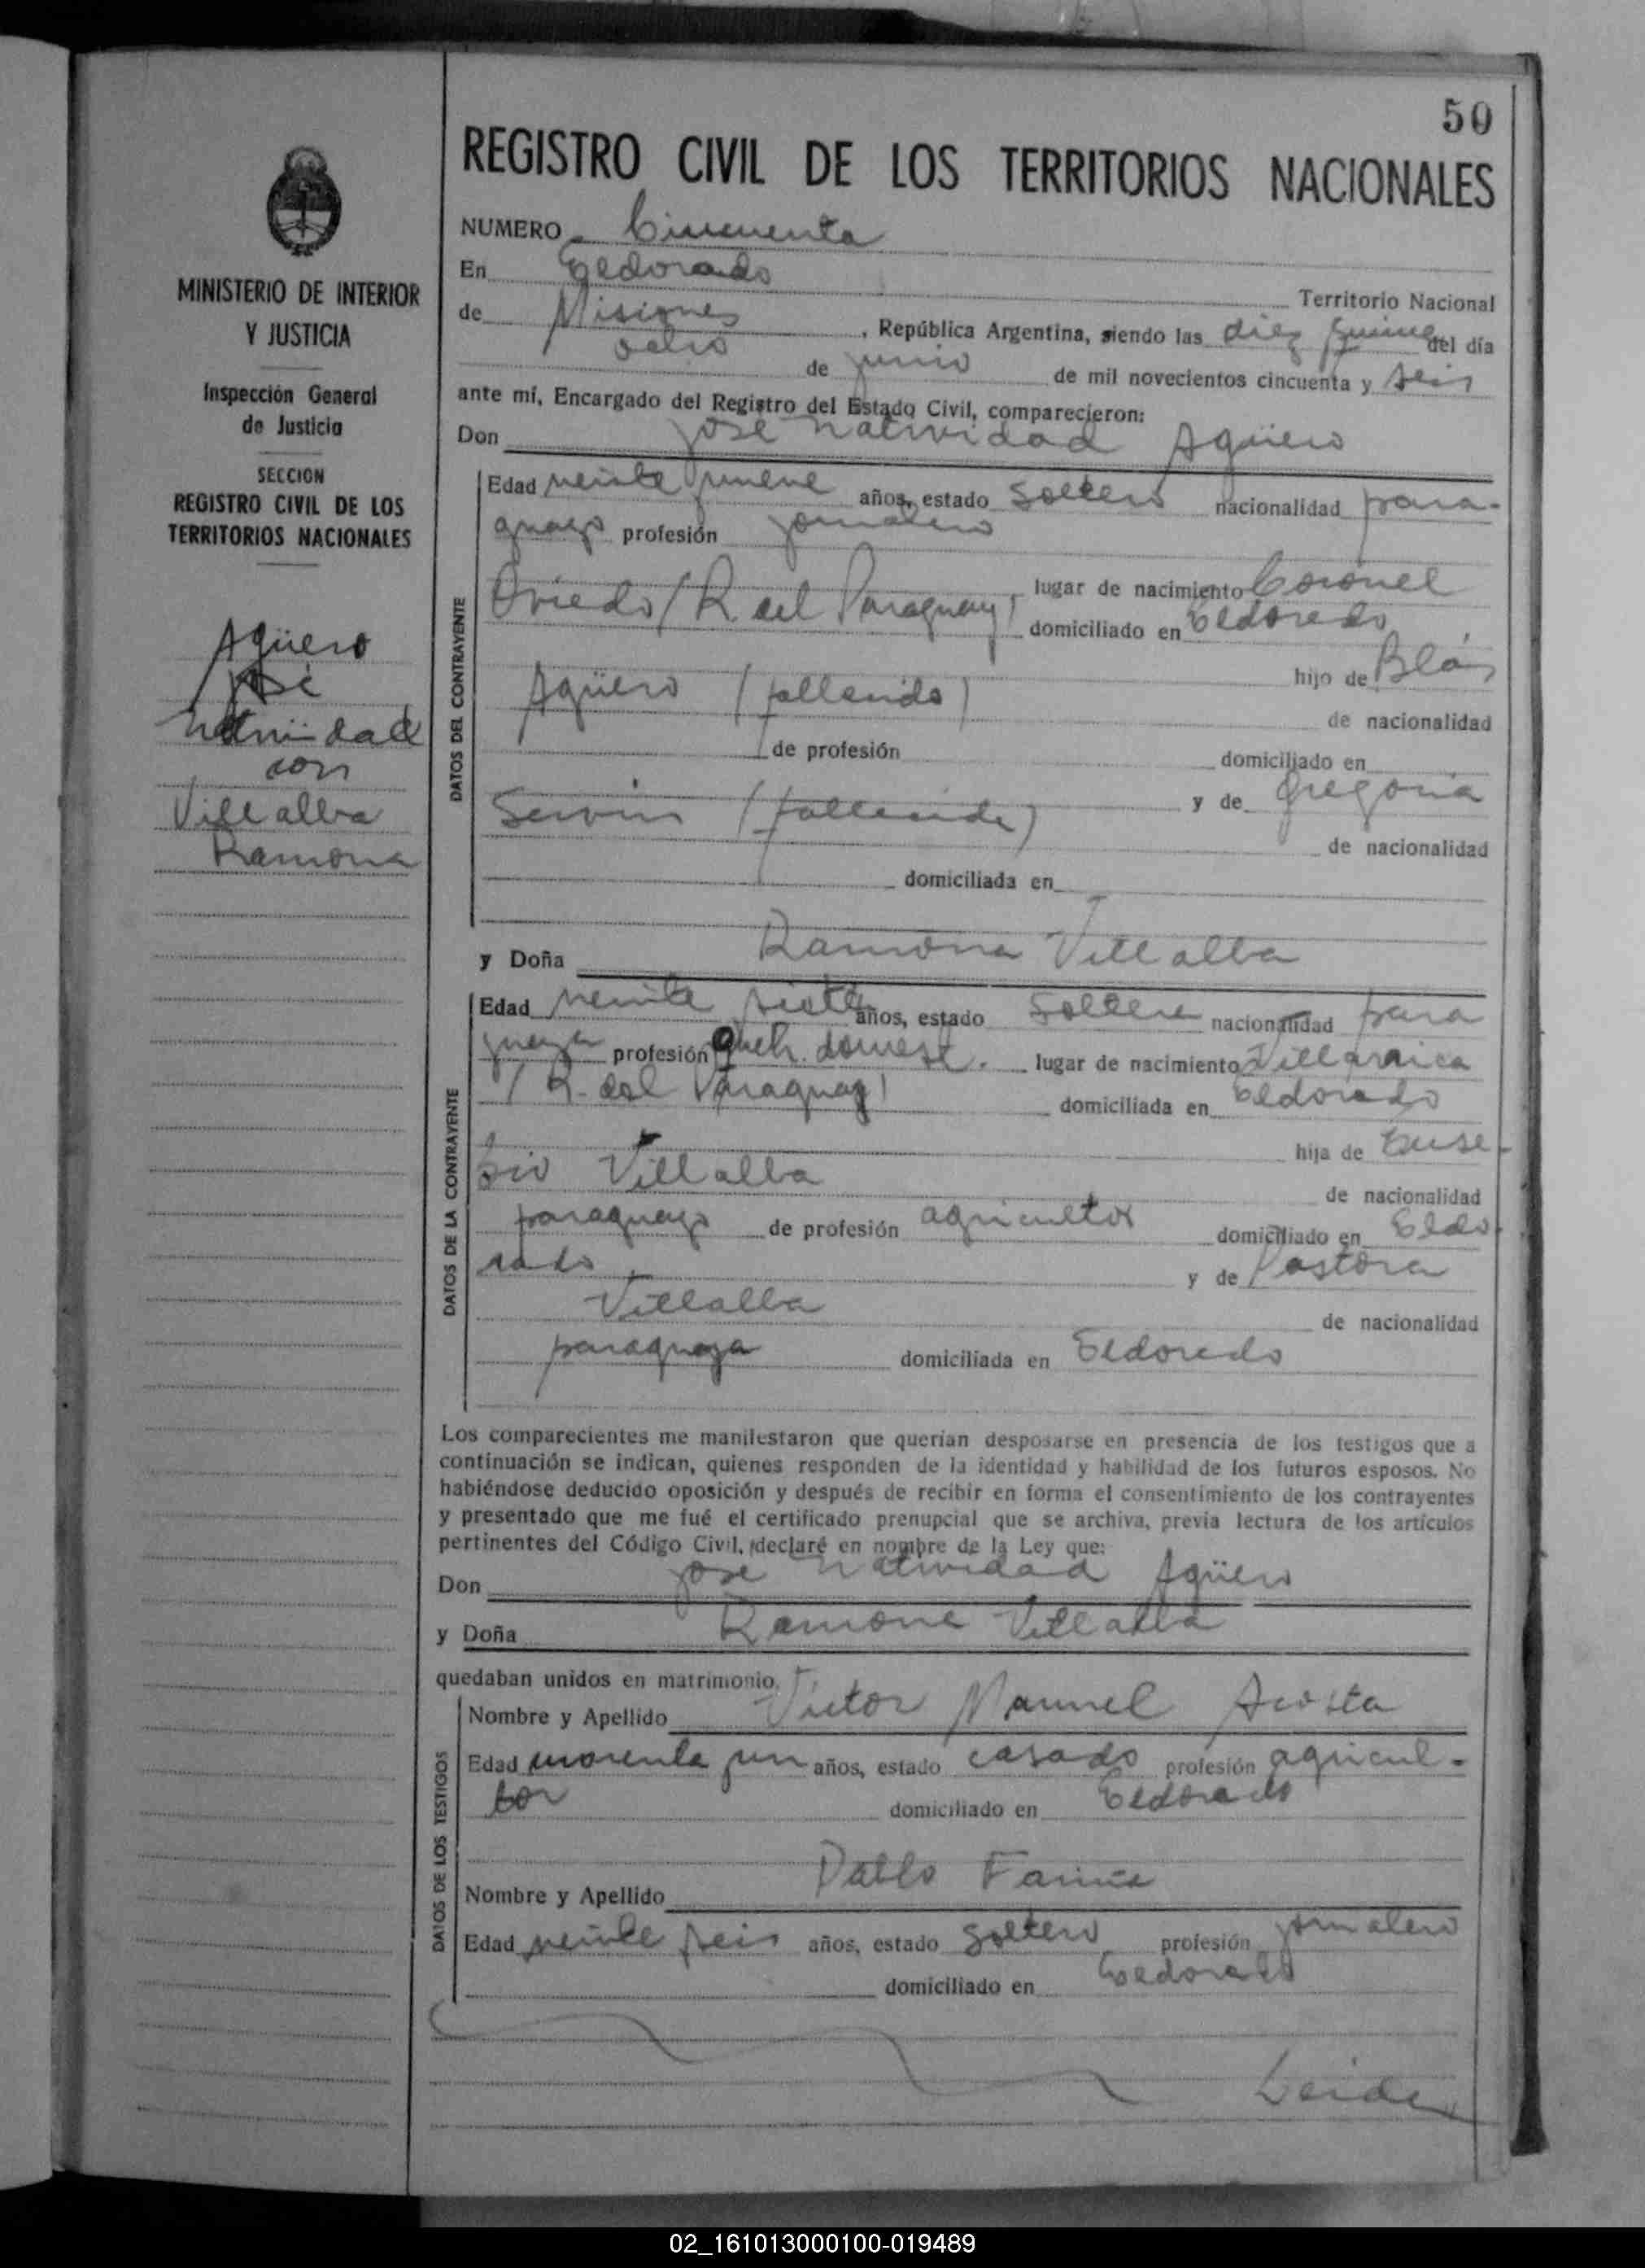 50
REGISTRO CIVIL DE LOS TERRITORIOS NACIONALES
MINISTERIO DE INTERIOR
Y JUSTICIA
Inspección General
de Justicia
SECCION
REGISTRO CIVIL DE LOS
TERRITORIOS NACIONALES
Agüero
José
Natividad
con
Villalba
Ramona
NUMERO Cincuenta
En Eldorado
Territorio Nacional
de Misiones, República Argentina, siendo las diez quince del día
ocho de junio de mil novecientos cincuenta y seis
ante mí, Encargado del Registro del Estado Civil, comparecieron:
Don José Natividad Agüero
DATOS DEL CONTRAYENTE
Edad veinte nueve años, estado soltero nacionalidad para-
guayo profesión jornalero
lugar de nacimiento Coronel
Oviedo (R. del Paraguay) domiciliado en Eldorado
hijo de Blás
Agüero (fallecido)
de nacionalidad
de profesión domiciliado en
y de Gregoria
Servin (fallecida)
de nacionalidad
domiciliada en
y Doña Ramona Villalba
DATOS DE LA CONTRAYENTE
Edad veinte siete años, estado soltera nacionalidad para
guaya profesión queh. domest. lugar de nacimiento Villarrica
(R. del Paraguay) domiciliada en Eldorado
hija de Euse-
bio Villalba
de nacionalidad
paraguayo de profesión agricultor domiciliado en Eldo-
rado y de Pastora
Villalba
de nacionalidad
paraguaya domiciliada en Eldorado
Los comparecientes me manifestaron que querían desposarse en presencia de los testigos que a
continuación se indican, quienes responden de la identidad y habilidad de los futuros esposos. No
habiéndose deducido oposición y después de recibir en forma el consentimiento de los contrayentes
y presentado que me fué el certificado prenupcial que se archiva, previa lectura de los artículos
pertinentes del Código Civil, declaré en nombre de la Ley que:
Don José Natividad Agüero
y Doña Ramona Villalba
quedaban unidos en matrimonio.
DATOS DE LOS TESTIGOS
Nombre y Apellido Victor Manuel Acosta
Edad cuarenta un años, estado casado profesión agricul-
tor domiciliado en Eldorado
Nombre y Apellido Pablo
Edad veinte seis años, estado soltero profesión jornalero
domiciliado en Eldorado
Leida
02_161013000100-019489